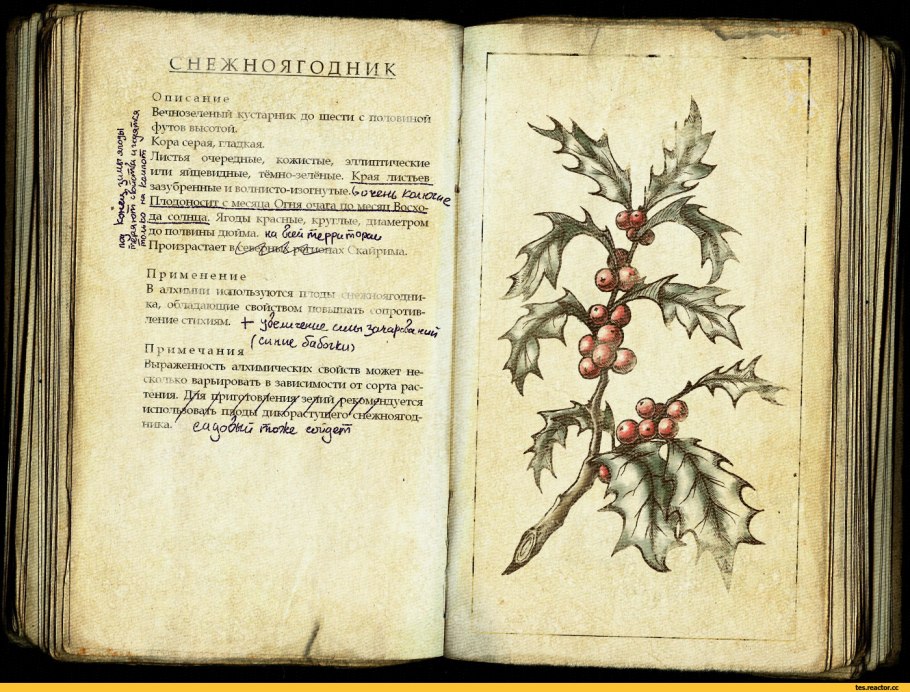 СНЕЖНОЯГОДНИК
Описание
Вечнозеленый кустарник до шести с половиной
футов высотой.
Кора серая, гладкая.
Листья очередные, кожистые, эллиптические
или яйцевидные, тёмно-зелёные. Края листьев
зазубренные и волнисто-изогнутые. очень колючие
Плодоносит с месяца Огня очага по месяц Восхо-
да солнца. Ягоды красные, круглые, диаметром
до полвины дюйма. на всей территории
Произрастает в северных регионах Скайрима.
на конец зимы ягоды
теряют свойства и годятся
только на компот
Применение
В алхимии используются плоды снежноягодни-
ка, обладающие свойством повышать сопротив-
ление стихиям. + увеличение силы зачарований
(синие бабочки)
Примечания
Выраженность алхимических свойств может не-
сколько варьировать в зависимости от сорта рас-
тения. Для приготовления зелий рекомендуется
использовать плоды дикорастущего снежноягод-
ника. садовый тоже сойдет
tes.reactor.cc